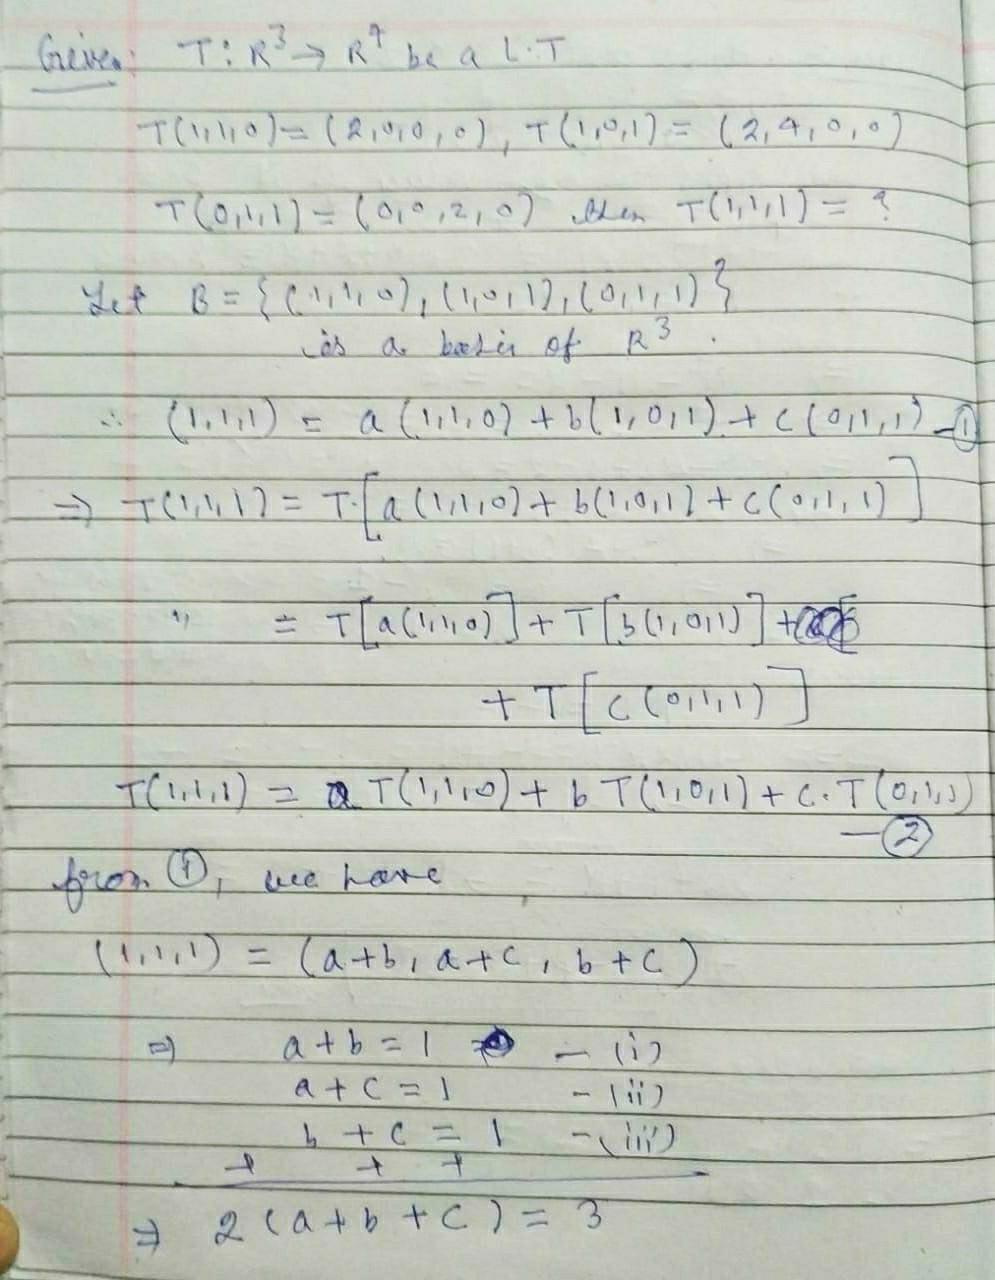 Given: T: R³ → R⁴ be a L.T
T(1,1,0) = (2,0,0,0), T(1,0,1) = (2,4,0,0)
T(0,1,1) = (0,0,2,0) then T(1,1,1) = ?
Let B = {(1,1,0), (1,0,1), (0,1,1)}
is a basis of R³.
∴ (1,1,1) = a(1,1,0) + b(1,0,1) + c(0,1,1) —①
⇒ T(1,1,1) = T.[a(1,1,0) + b(1,0,1) + c(0,1,1)]
" = T[a(1,1,0)] + T[b(1,0,1)] +
+ T[c(0,1,1)]
T(1,1,1) = a T(1,1,0) + b T(1,0,1) + c. T(0,1,1)
—②
from ①, we have
(1,1,1) = (a+b, a+c, b+c)
⇒ a + b = 1 – (i)
a + c = 1 – (ii)
b + c = 1 – (iii)
+ + +
⇒ 2(a+b+c) = 3